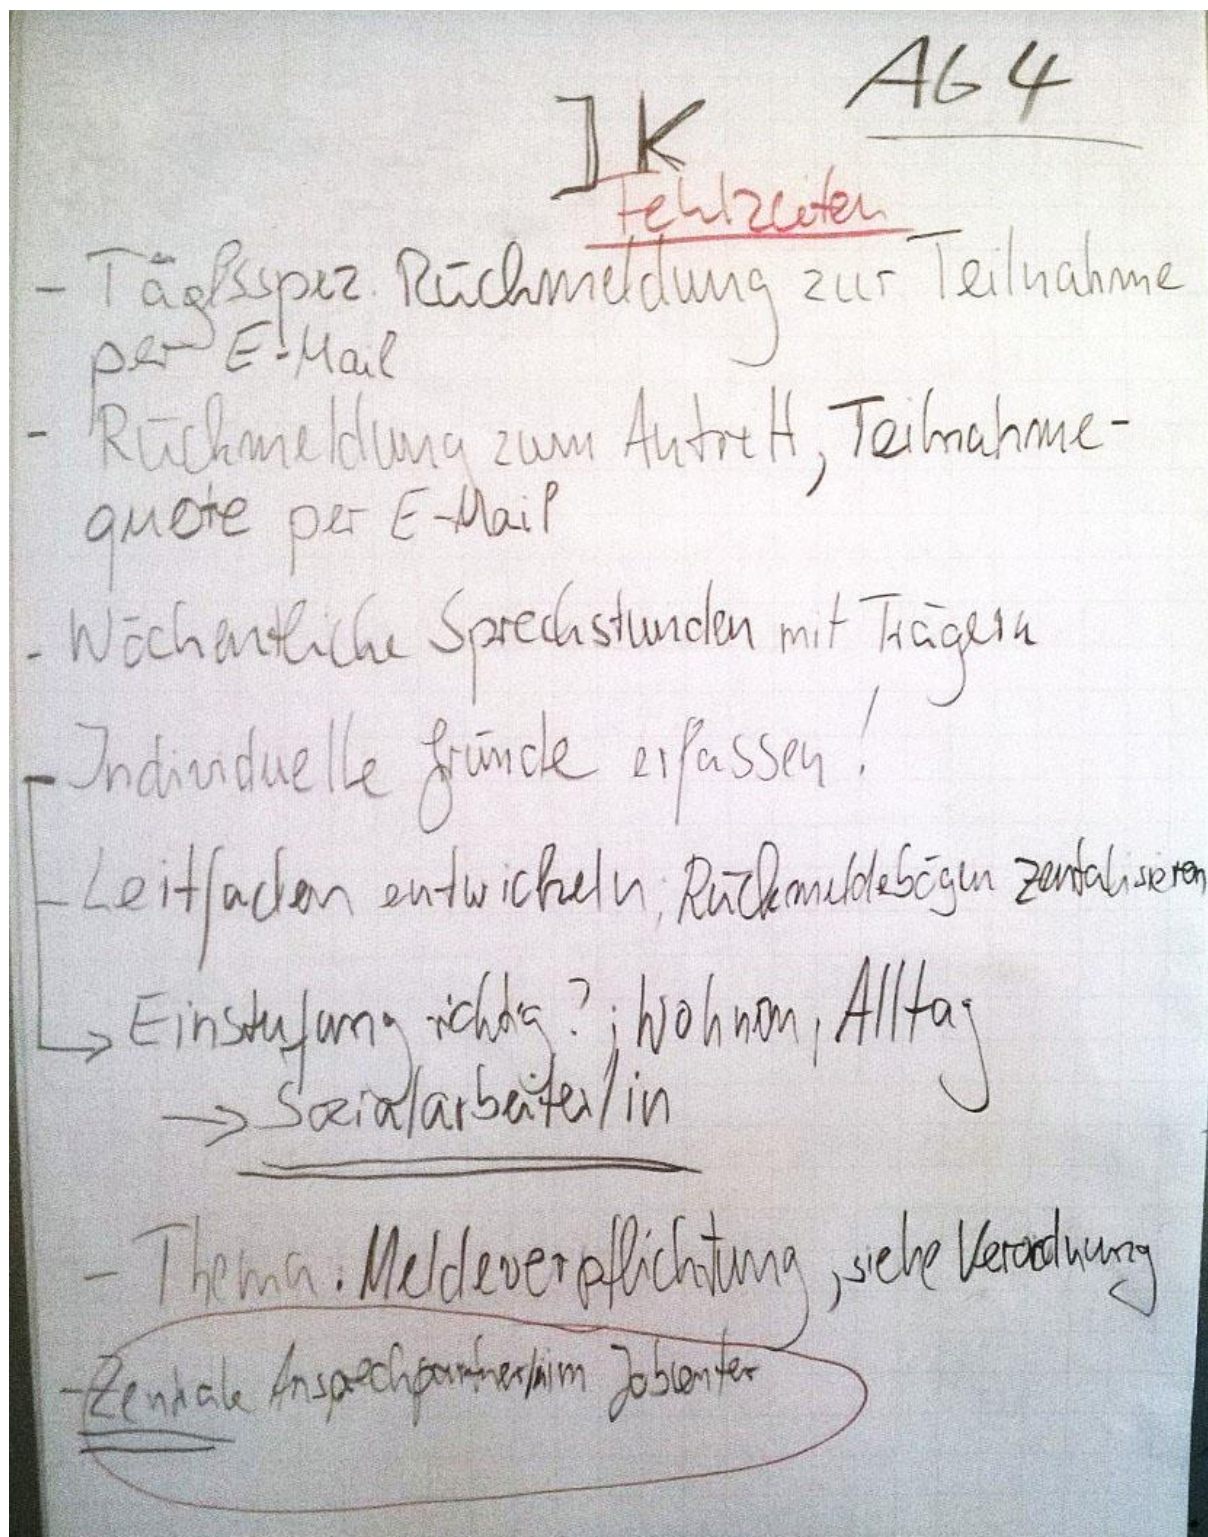 AG 4
IK
Fehlzeiten
- Rückmeldung zur Teilnahme
per E-Mail
- Rückmeldung zum Antritt, Teilnahme-
quote per E-Mail
- Wöchentliche Sprechstunden mit Trägern
- Individuelle Gründe erfassen!
- Leitfaden entwickeln; Rückmeldebögen zentalisieren
→ Einstufung richtig?; Wohnen, Alltag
→ Sozialarbeiter/in
- Thema: Meldeverpflichtung, siehe Verordnung
- Zentrale Ansprechpartner/in im Jobcenter